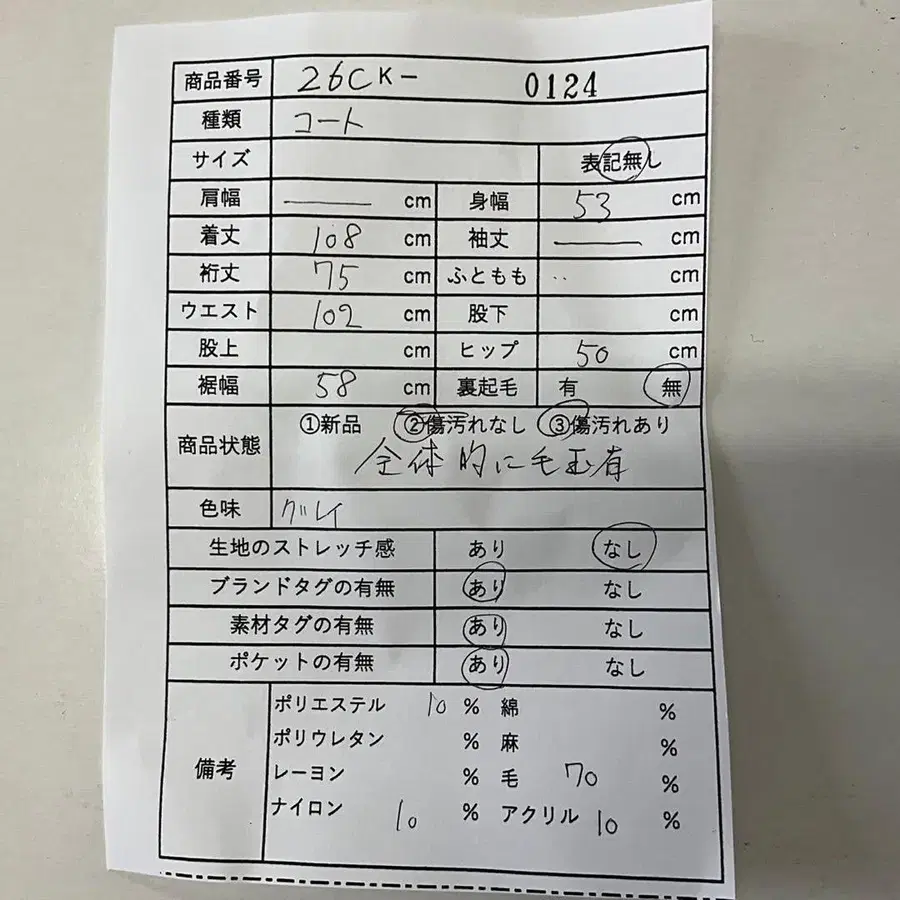 商品番号 26CK- 0124
種類 コート
サイズ 表記無し
肩幅 cm 身幅 53 cm
着丈 108 cm 袖丈 cm
裄丈 75 cm ふともも cm
ウエスト 102 cm 股下 cm
股上 cm ヒップ 50 cm
裾幅 58 cm 裏起毛 有 無
商品状態 ①新品 ②傷汚れなし ③傷汚れあり
全体的に毛玉有
色味 グレイ
生地のストレッチ感 あり なし
ブランドタグの有無 あり なし
素材タグの有無 あり なし
ポケットの有無 あり なし
備考
ポリエステル 10 % 綿 %
ポリウレタン % 麻 %
レーヨン % 毛 70 %
ナイロン 10 % アクリル 10 %